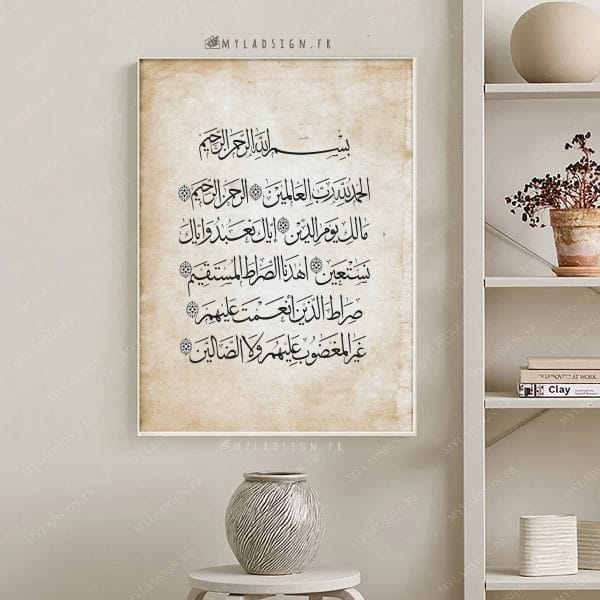 MYLADSIGN.FR
بسم الله الرحمن الرحيم
الحمد لله رب العالمين ۝ الرحمن الرحيم ۝
مالك يوم الدين ۝ إياك نعبد وإياك
نستعين ۝ اهدنا الصراط المستقيم ۝
صراط الذين أنعمت عليهم ۝
غير المغضوب عليهم ولا الضالين ۝
MYLADSIGN.FR
AT WORK
Clay